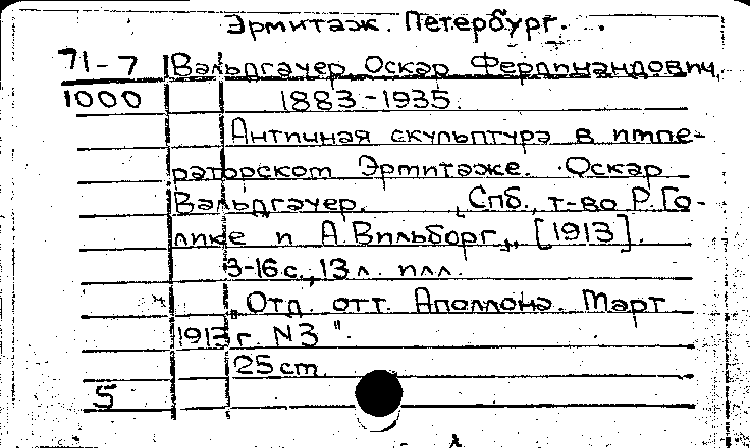 Эрмитаж. Петербург.
71-7 Вальдгауер, Оскар Фердинандович,
1000 1883-1935.
Античная скульптура в импе-
раторском Эрмитаже. Оскар
Вальдгауер. Спб., т-во Р. Го-
лике и А. Вильборг, [1913].
3-16 с., 13 л. илл.
"Отд. отт. Аполлона. Март
1913 г. N 3".
25 cm.
5